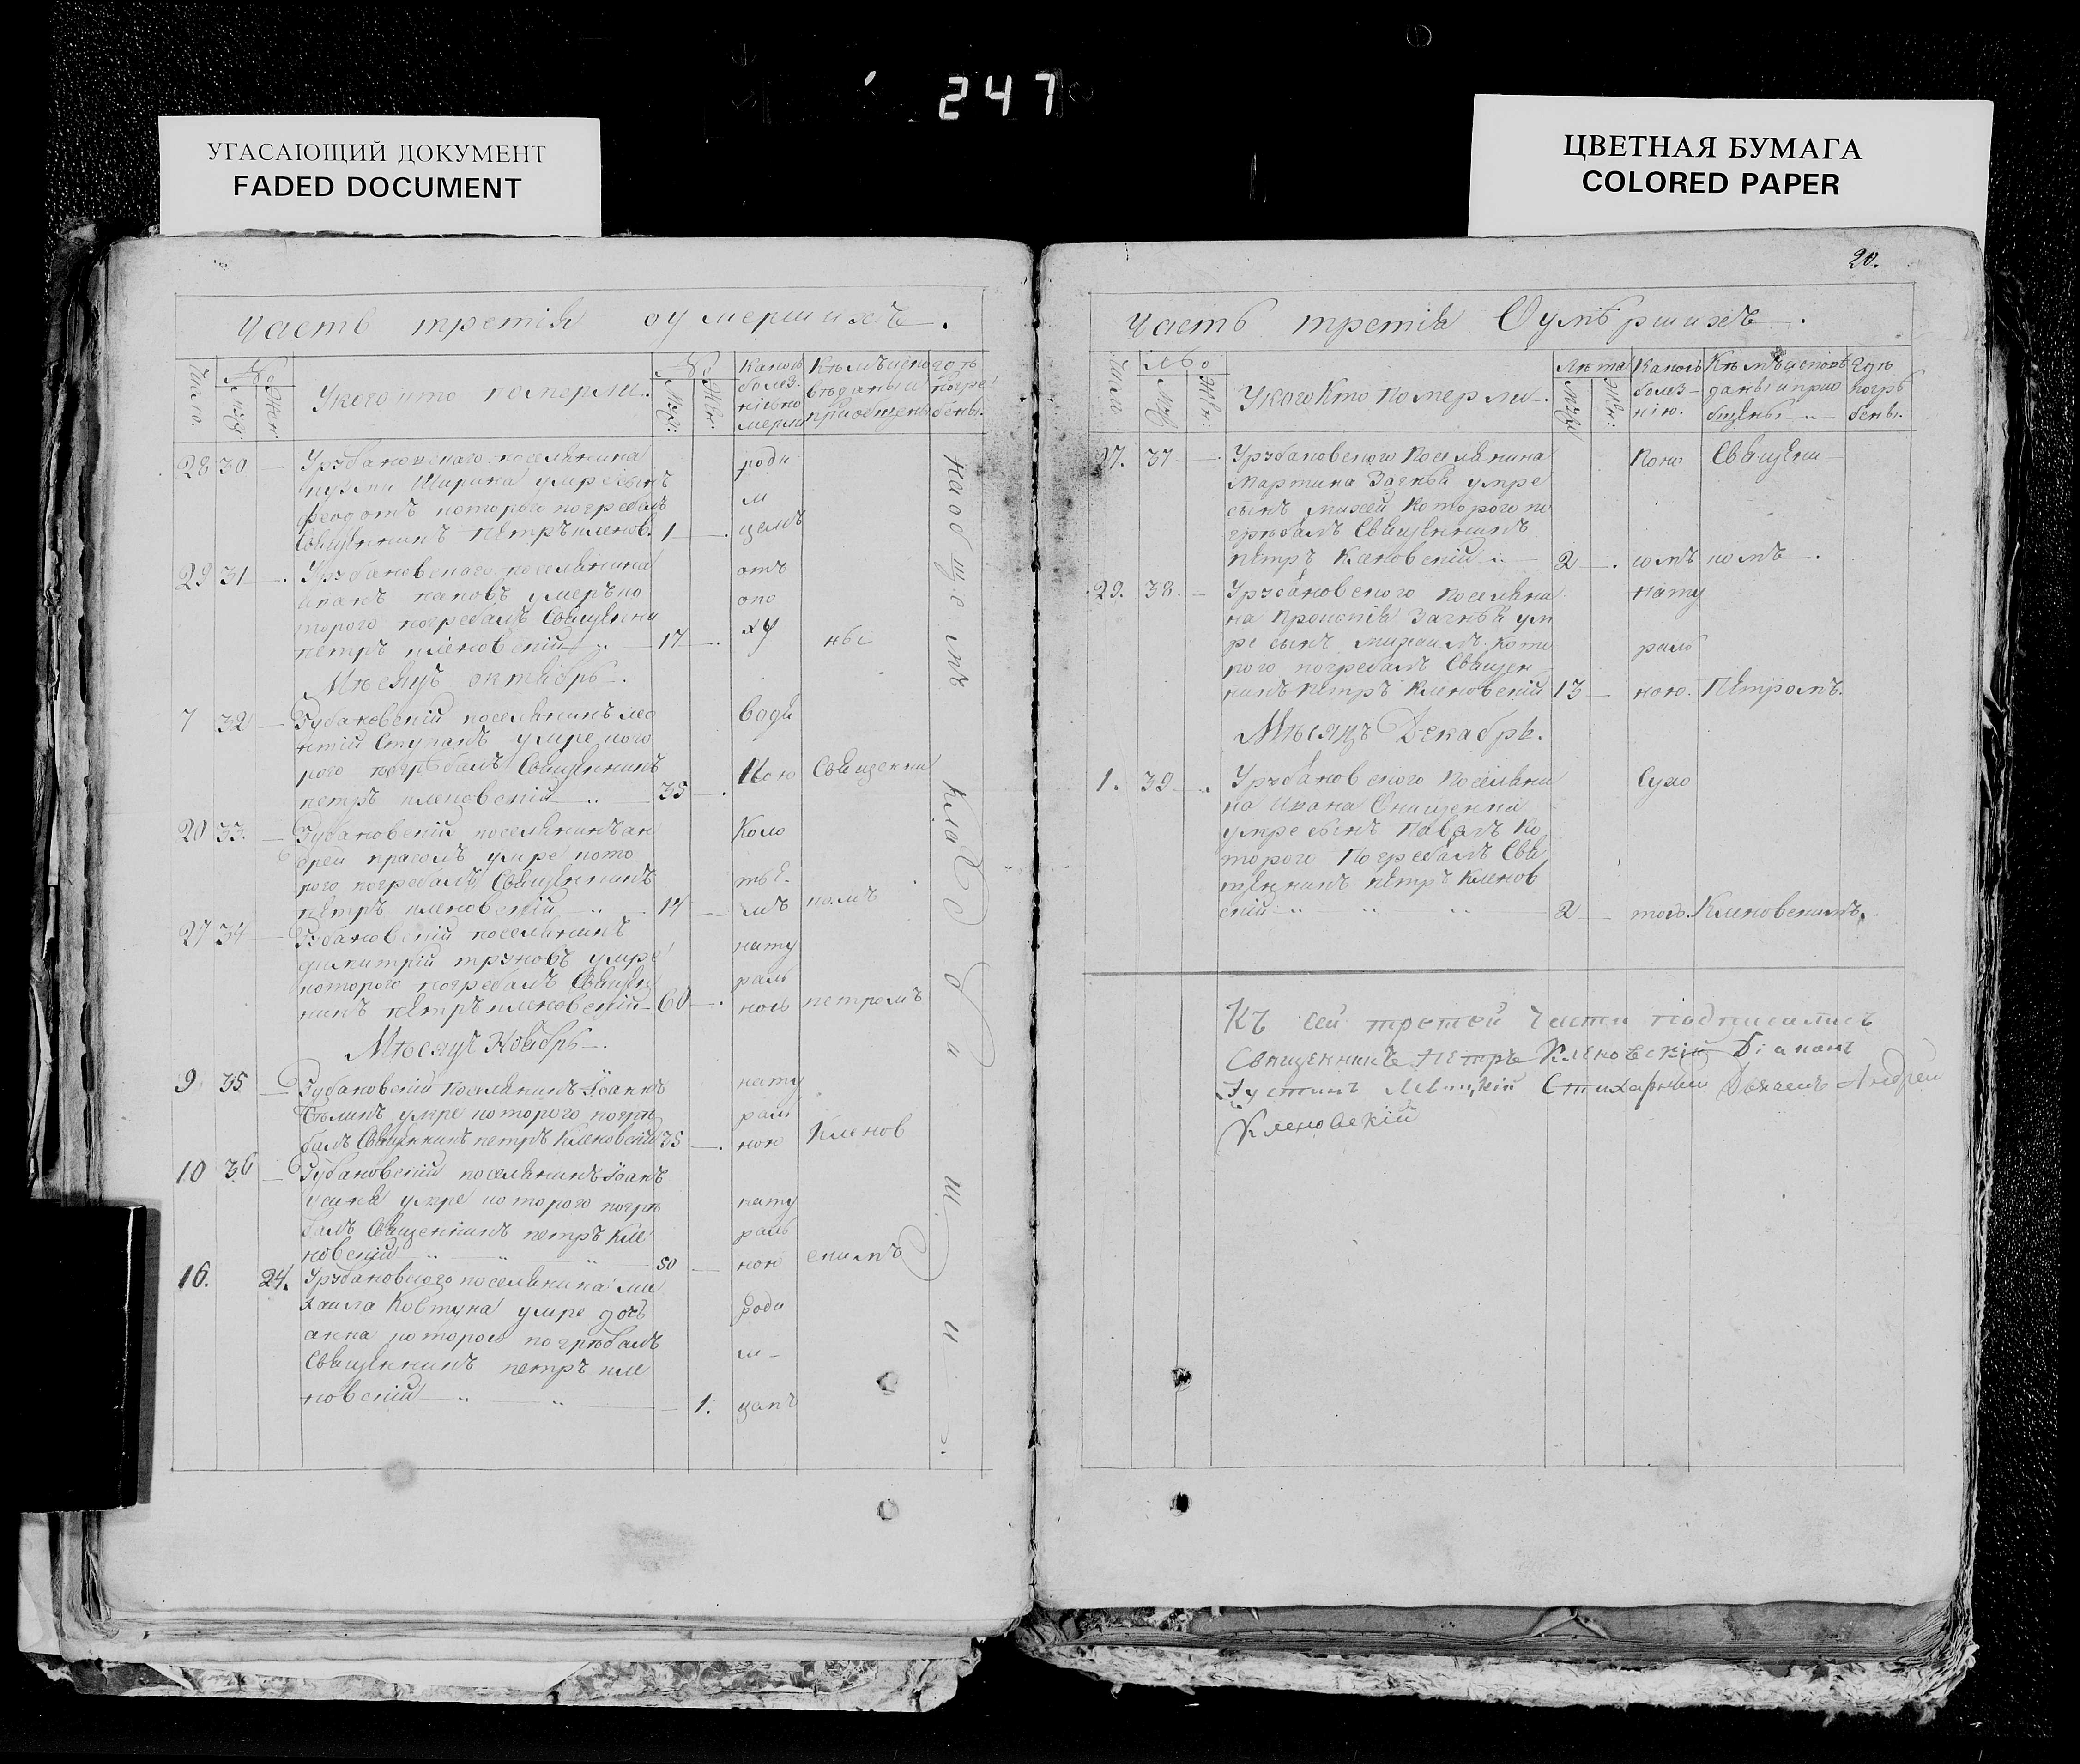 247
УГАСАЮЩИЙ ДОКУМЕНТ
FADED DOCUMENT
ЦВЕТНАЯ БУМАГА
COLORED PAPER
Часть третія оумершихъ.
Число.
№
Муж:
Жен:
У кого кто померли.
№
Муж:
Жен:
Какою болезнію померли
Кѣмъ исповѣданы и приобщены
гдѣ погребены.
28 30 —
Угубановскаго поселянина
умре сынъ
федотъ которого погребалъ
Священникъ Петръ кленов. 1 —
роди
м
цемъ
29 31 —
Угубановскаго поселянина
умеръ ко
торого погребалъ Священни
петръ кленовскій 17 —
отъ
опо
ху
ны
Мѣсяцъ октябрь.
7 32 —
Губановскій поселянинъ лео
нтій Ступакъ умре кото
рого погребалъ Священникъ
петръ кленовскій 35 —
води
Кою
Священни
20 33. —
Губановскій поселянинъ ан
дрей умре кото
рого погребалъ Священникъ
петръ кленовскій 14 —
Коло
тье
мъ
комъ
27 34 —
Губановскій поселянинъ
димитрій умре
которого погребалъ Священ
никъ петръ кленовскій 60 —
нату
раль
ною
петромъ
Мѣсяцъ Ноябрь.
9 35 —
Губановскій поселянинъ Іоаннъ
умре которого погрѣ
балъ Священникъ петръ Кленовскій 35 —
нату
раль
ною
Кленов
10 36 —
Губановскій поселянинъ Іоанъ
умре которого погрѣ
балъ Священникъ петръ Кле
новскій 50 —
нату
раль
ною
скимъ
16. 24.
Угубановского поселянина ми
хаила Ковтуна умре дочь
анна которою погрѣбалъ
Священникъ петръ кле
новскій — 1.
роди
м
цемъ
на общемъ кладбищи
20.
Часть третія Оумѣршихъ.
Число
№
Муж
Жен:
У кого Кто Померли.
Лѣта
Муж
Жен:
Какою болезнію.
Кѣмъ исповѣданы и приобщены
Гдѣ погрѣбены.
27. 37 —
Угубановского Поселянина
Мартина умре
сынъ которого по
грѣбалъ Священникъ
петръ Кленовскій 2 —
Кою
Священи
комъ.
29. 38. —
Угубановского поселяни
на ум
ре сынъ михаилъ кото
рого погребалъ Священ
никъ петръ Кленовскій 13 —
нату
раль
ною.
Пѣтромъ.
Мѣсяцъ Декабрь.
1. 39 —
Угубановского поселяни
на Ивана Онищенка
умре сынъ Павелъ Ко
торого Погребалъ Свя
щенникъ петръ Кленов
скій 2 —
Сухо
тою.
Кленовскимъ.
Къ сей третей части подписались
Священникъ Петръ Кленовскій Діаконъ
Іустинъ Левицкій Стихарный Дьячекъ Андрей
Кленовскій